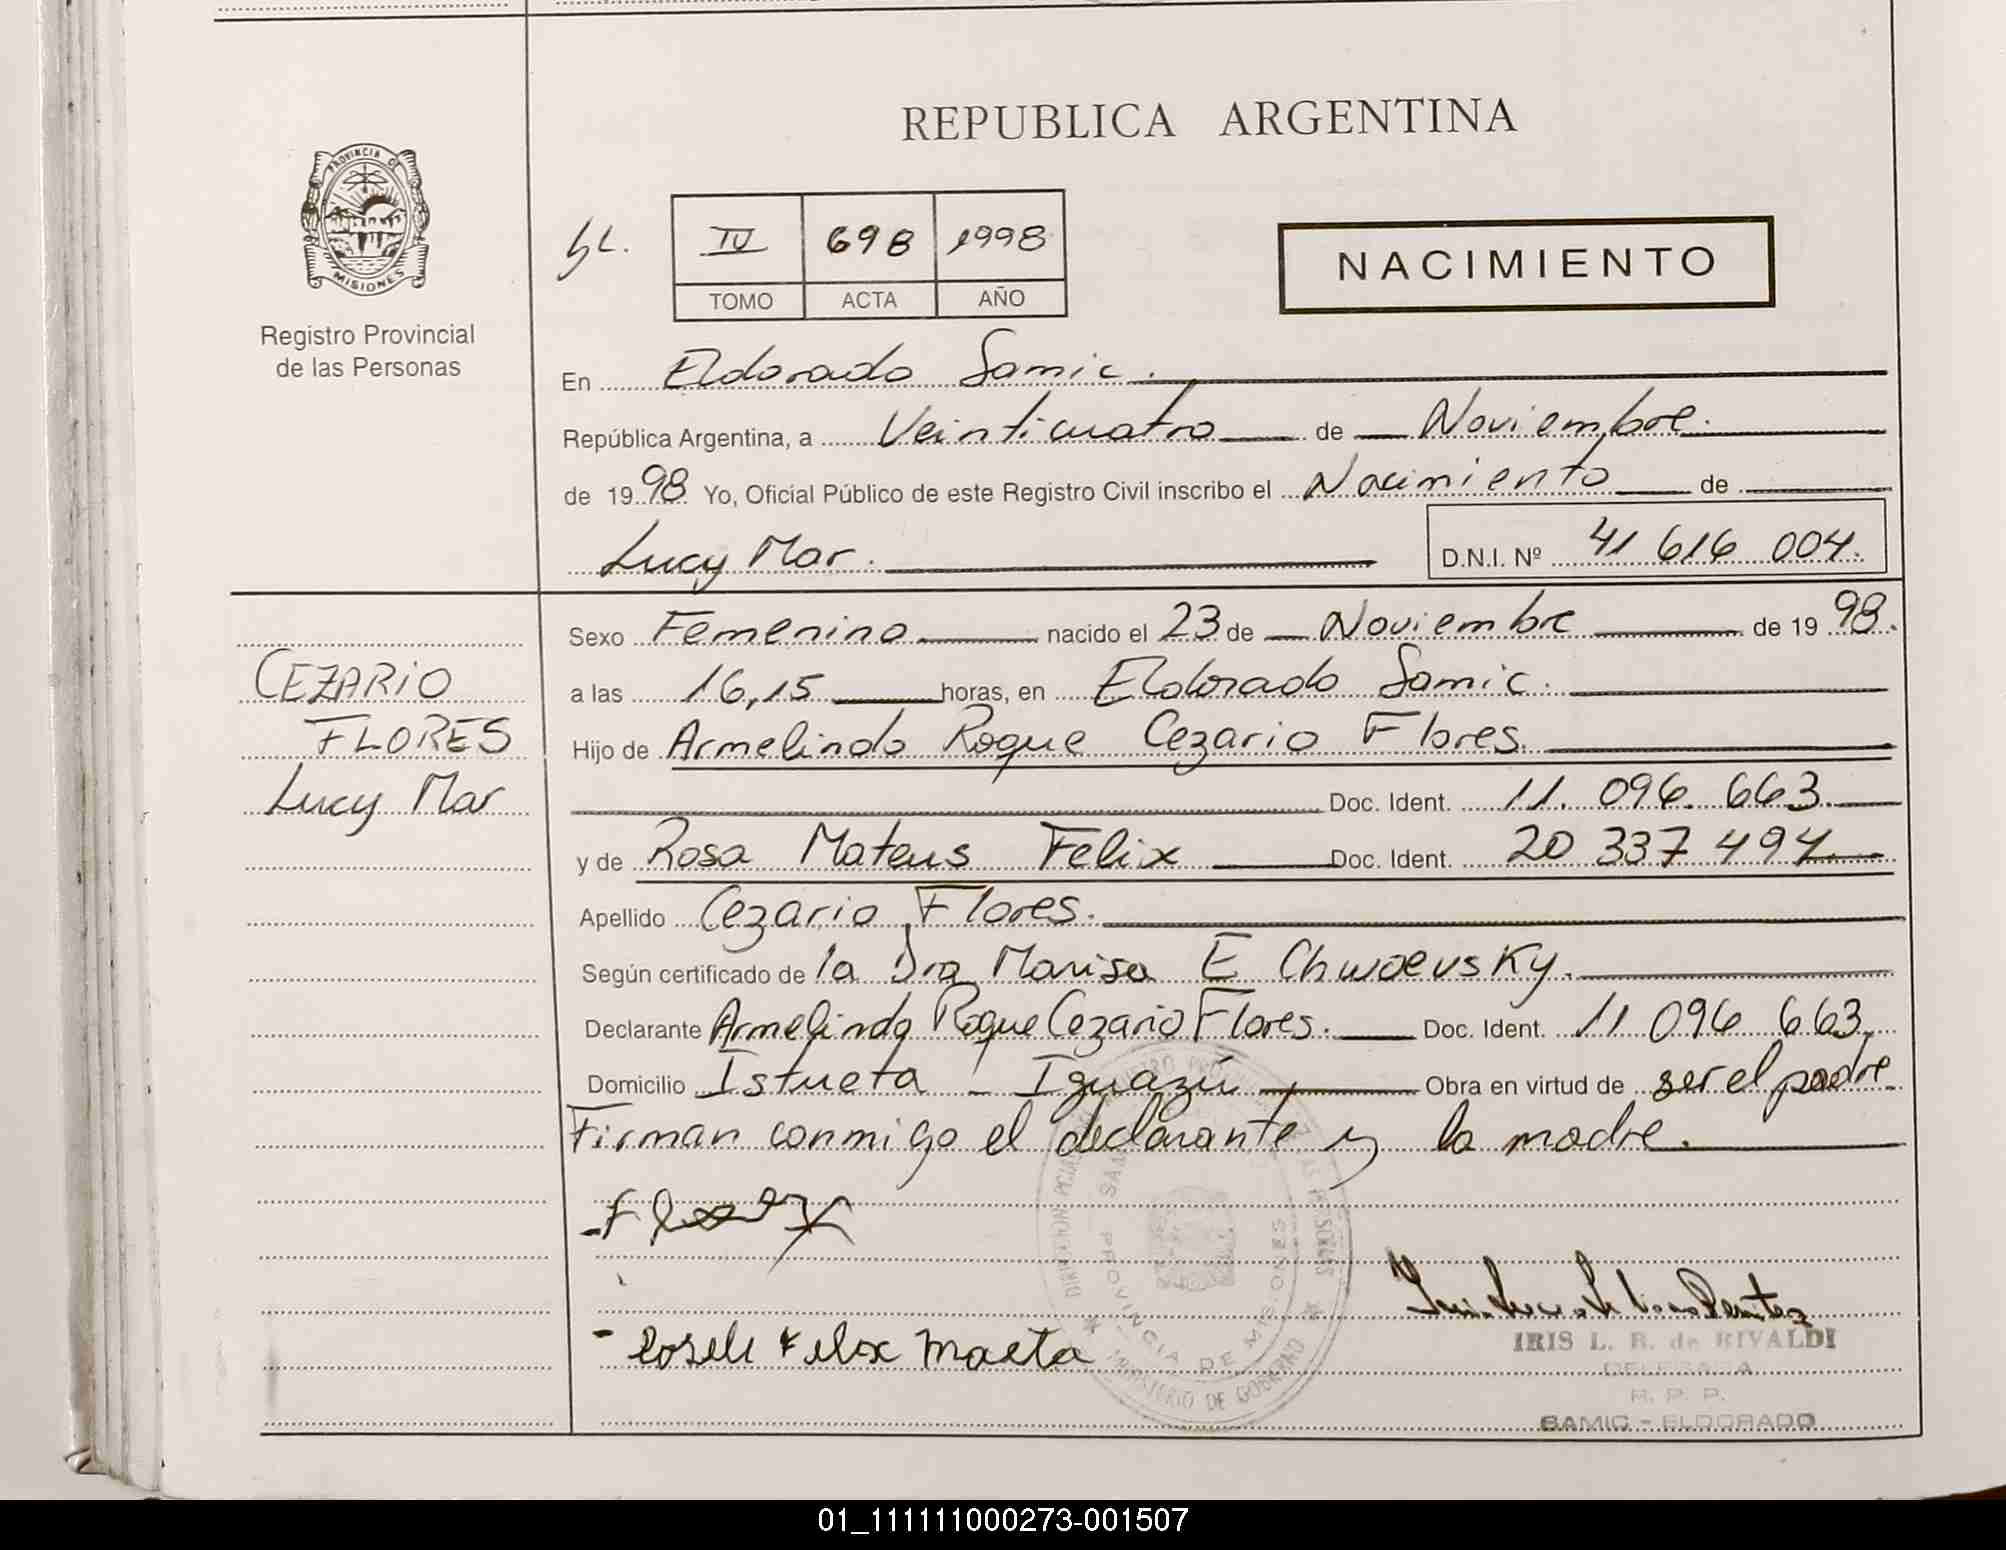 REPUBLICA ARGENTINA
PROVINCIA DE
MISIONES
Registro Provincial
de las Personas
IV 698 1998
TOMO ACTA AÑO
NACIMIENTO
En Eldorado Samic.
República Argentina, a Veinticuatro de Noviembre.
de 1998 Yo, Oficial Público de este Registro Civil inscribo el Nacimiento de
Lucy Mar. D.N.I. Nº 41 616 004.
CEZARIO
FLORES
Lucy Mar
Sexo Femenino nacido el 23 de Noviembre de 1998.
a las 16,15 horas, en Eldorado Samic.
Hijo de Armelindo Roque Cezario Flores.
Doc. Ident. 11. 096. 663.
y de Rosa Mateus Felix Doc. Ident. 20 337 494.
Apellido Cezario Flores.
Según certificado de la Dra Marisa E Chwoevsky.
Declarante Armelindo Roque Cezario Flores. Doc. Ident. 11 096 663.
Domicilio Istueta - Iguazú Obra en virtud de ser el padre
Firman conmigo el declarante y la madre.
PROVINCIA DE MISIONES
MINISTERIO DE GOBIERNO
IRIS L. B. de RIVALDI
DELEGADA
R. P. P.
SAMIC - ELDORADO
01_111111000273-001507